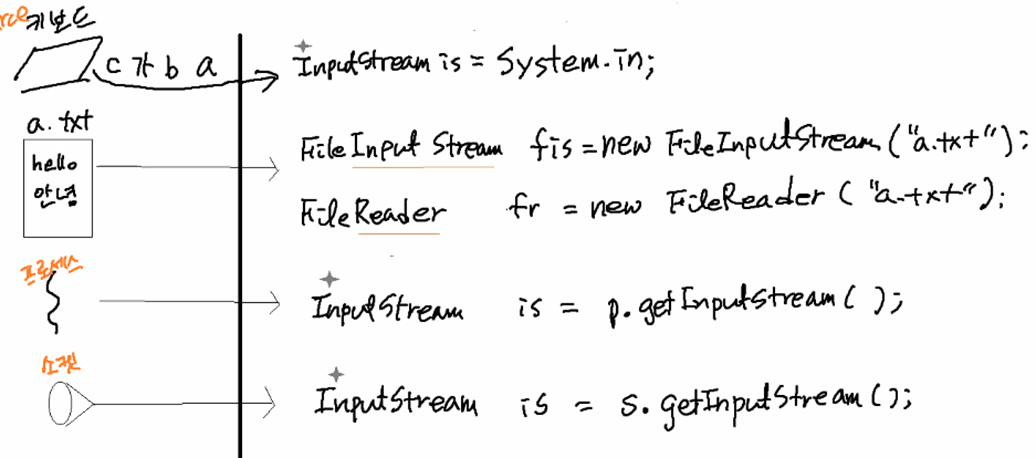 키보드
c 가 b a InputStream is = System.in;
a.txt
hello
안녕
FileInput Stream fis = new FileInputStream("a.txt");
FileReader fr = new FileReader ( "a.txt");
프로세스
InputStream is = p.getInputStream( );
소켓
InputStream is = s.getInputStream();